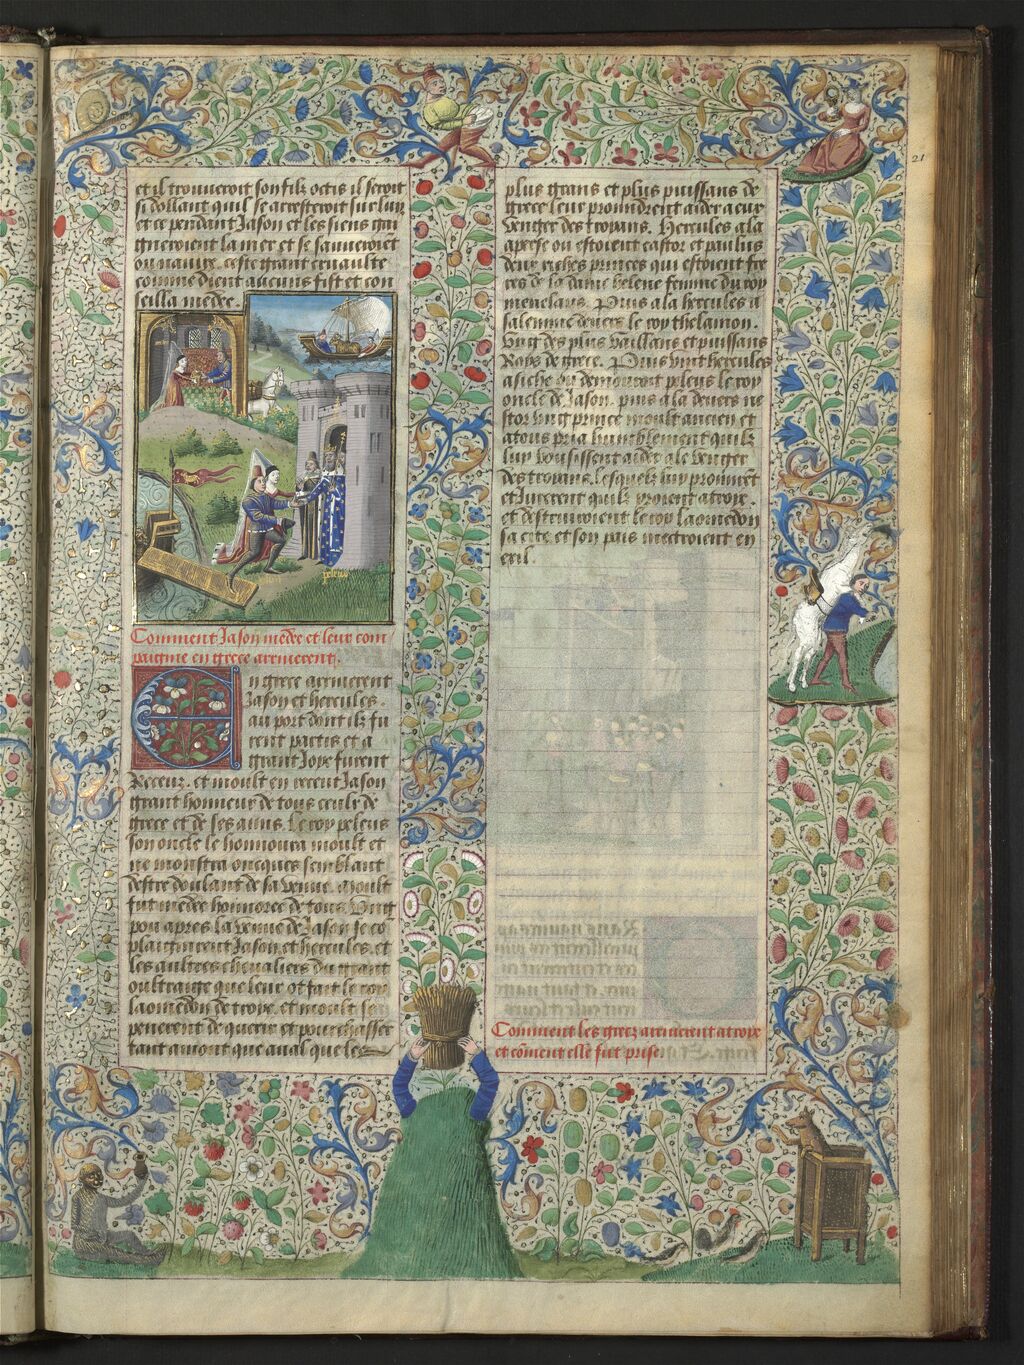 21
et il trouueroit son filz octis il seroit
si dollant quil se arresteroit sur luy
et ce pendant Jason et les siens gai
gneroient la mer et se sauueroiet
ou nauire. ceste grant cruaulte
comme dient aucuns fist et con
seilla medee.
peleus
Comment Jason medee et leur com
paignie en grece arriuerent.
En grece arriuerent
Jason et hercules.
au port dont ilz fu
rent partis et a
grant Joye furent
Receuz. et moult en receut Jason
grant honneur de tous ceulx de
grece et de ses amis. Le roy peleus
son oncle le honnoura moult et
ne monstra oncques semblant
destre doulant de sa venue. moult
fut medee honnoree de tous. Ung
pou apres la venue de Jason se co
plaignirent Jason et hercules. et
les aultres cheualiers du grant
oultraige que leur ot fait le roy
laomedon de troye. et moult se
penerent de querir et pourchasser
tant amont que aual que les
plus grans et plus puissans de
grece leur promidrent aider a eux
venger des troyans. Hercules ala
aperse ou estoient castor et paulus
deux riches princes qui estoient fre
res de la dame helene femme du roy
menelaus. Puis ala hercules a
salemine deuers le roy thelamon.
Ung des plus vaillans et puissans
Roys de grece. Puis vint hercules
a fiche ou demouroit peleus le roy
oncle de Jason. puis ala deuers ne
stor ung prince moult ancien et
a tous pria humblement quilz
luy voulsissent aider a le venger
des troyans. lesquelz luy promiret
et Jurerent quilz yroient a troye.
et destruiroient le roy laomedon
sa cite et son pais mectroient en
exil.
Comment les grez arriuerent a troye
et coment elle fut prise